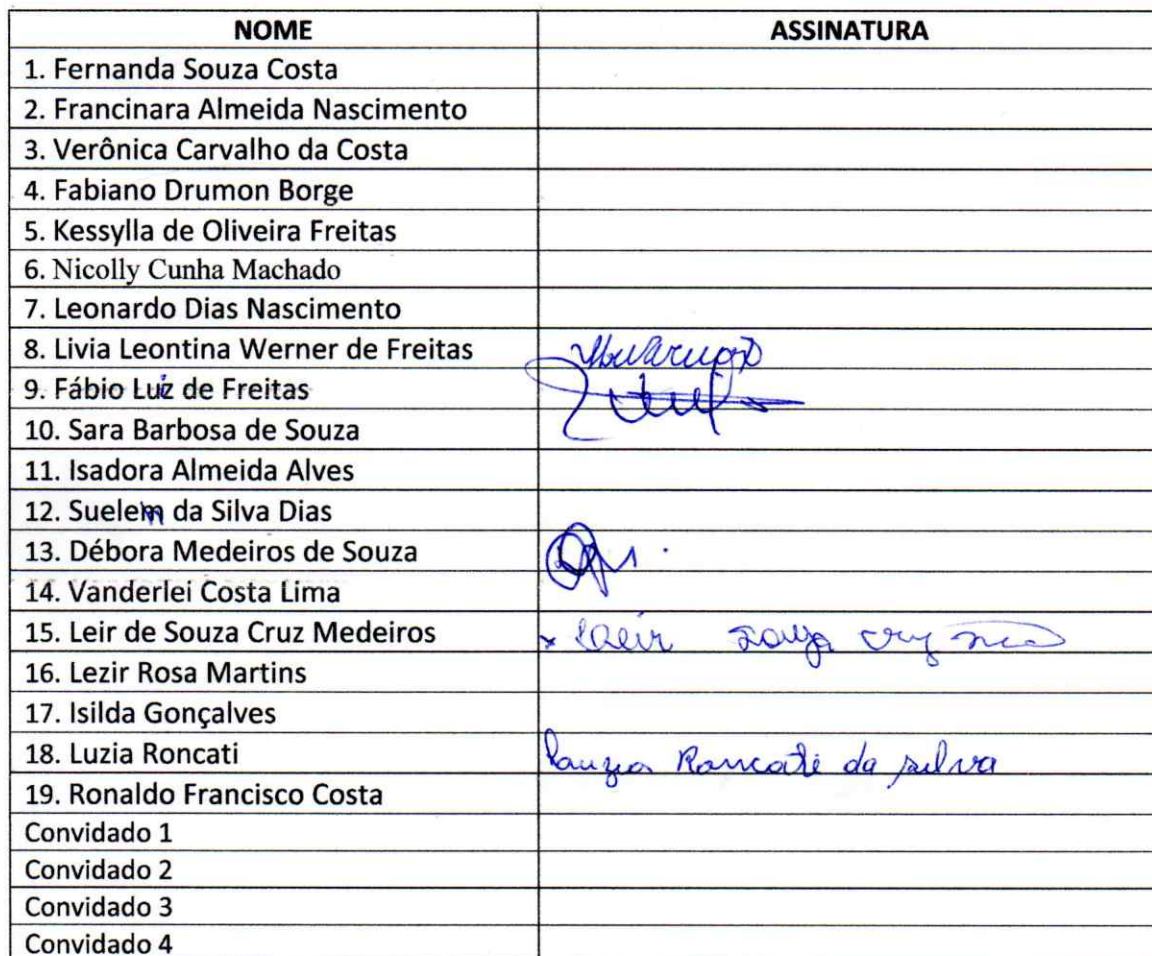 NOME ASSINATURA
1. Fernanda Souza Costa
2. Francinara Almeida Nascimento
3. Verônica Carvalho da Costa
4. Fabiano Drumon Borge
5. Kessylla de Oliveira Freitas
6. Nicolly Cunha Machado
7. Leonardo Dias Nascimento
8. Livia Leontina Werner de Freitas
9. Fábio Luiz de Freitas
10. Sara Barbosa de Souza
11. Isadora Almeida Alves
12. Suelem da Silva Dias
13. Débora Medeiros de Souza
14. Vanderlei Costa Lima
15. Leir de Souza Cruz Medeiros x Leir Souza Cruz
16. Lezir Rosa Martins
17. Isilda Gonçalves
18. Luzia Roncati Luzia Roncati da silva
19. Ronaldo Francisco Costa
Convidado 1
Convidado 2
Convidado 3
Convidado 4